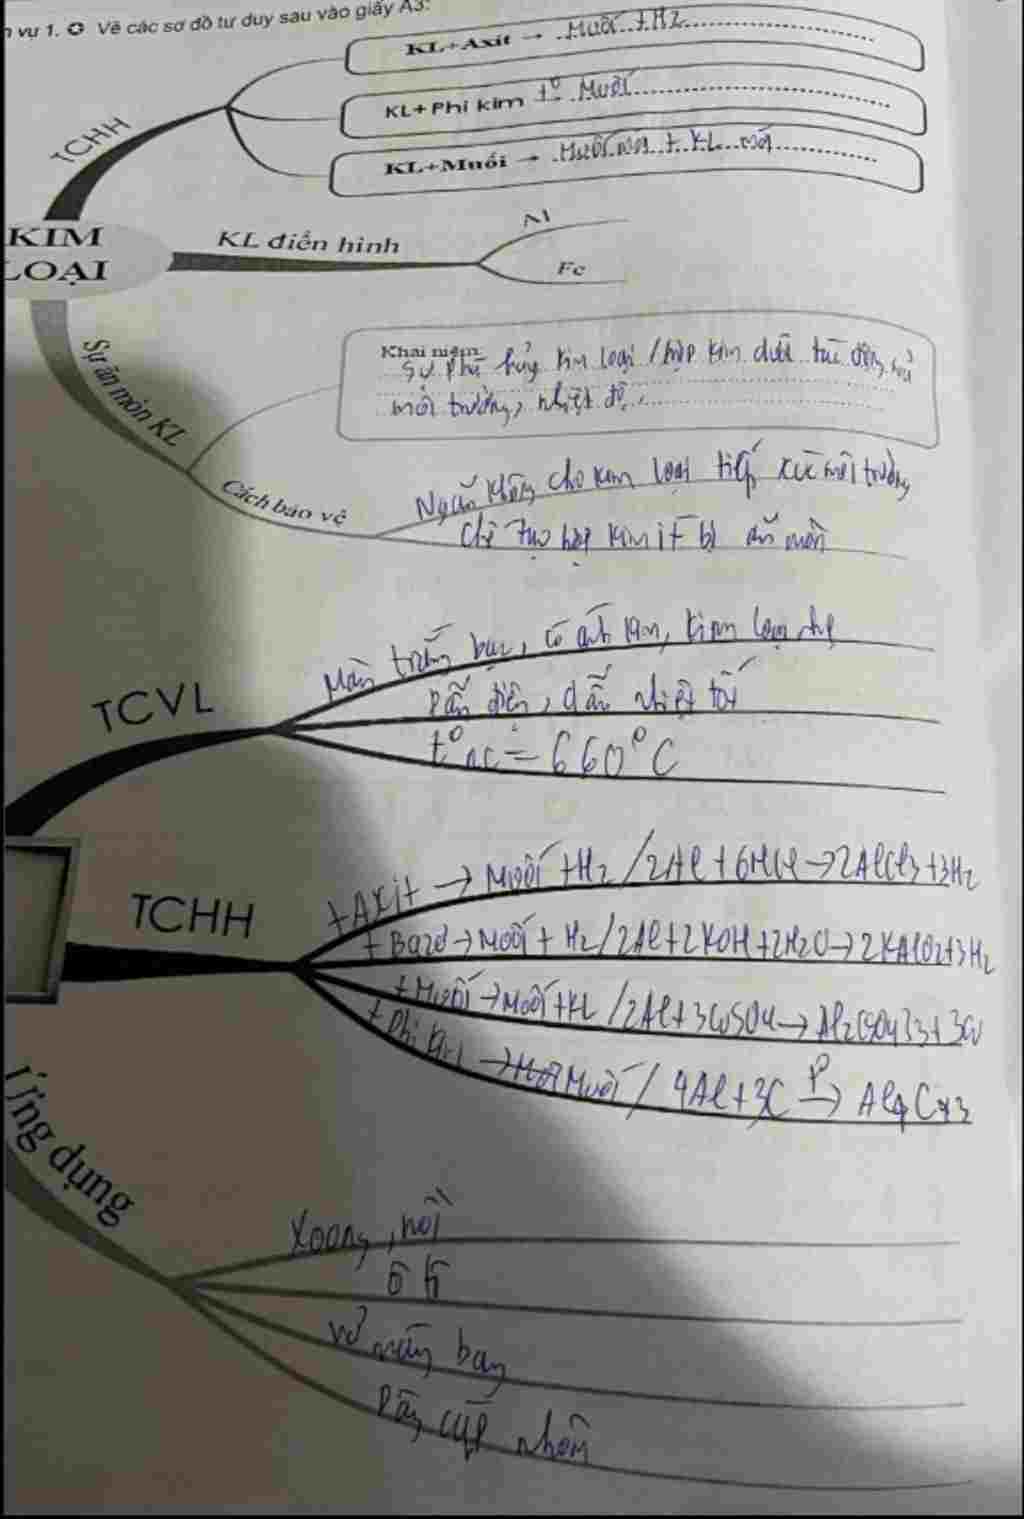 vụ 1. Vẽ các sơ đồ tư duy sau vào giấy A3:
KL+Axit → Muối + H2
KL+Phi kim t° → Muối
KL+Muối → Muối mới + KL mới
TCHH
KIM
LOẠI
KL điển hình
Al
Fe
Sự ăn mòn KL
Khái niệm:
Sự phá hủy kim loại / hợp kim dưới tác động
môi trường, nhiệt độ,
Cách bảo vệ
Ngăn không cho kim loại tiếp xúc môi trường
Chế tạo hợp kim ít bị ăn mòn
TCVL
Màu trắng bạc, có ánh kim, kim loại nhẹ
Dẫn điện, dẫn nhiệt tốt
t°nc = 660°C
TCHH
+ Axit → Muối + H2 / 2Al + 6HCl → 2AlCl3 + 3H2
+ Bazơ → Muối + H2 / 2Al + 2KOH + 2H2O → 2KAlO2 + 3H2
+ Muối → Muối + KL / 2Al + 3CuSO4 → Al2(SO4)3 + 3Cu
+ Phi kim → Muối / 4Al + 3C t° → Al4C3
Ứng dụng
Xoong, nồi
Ô tô
Vỏ máy bay
Dây cáp nhôm